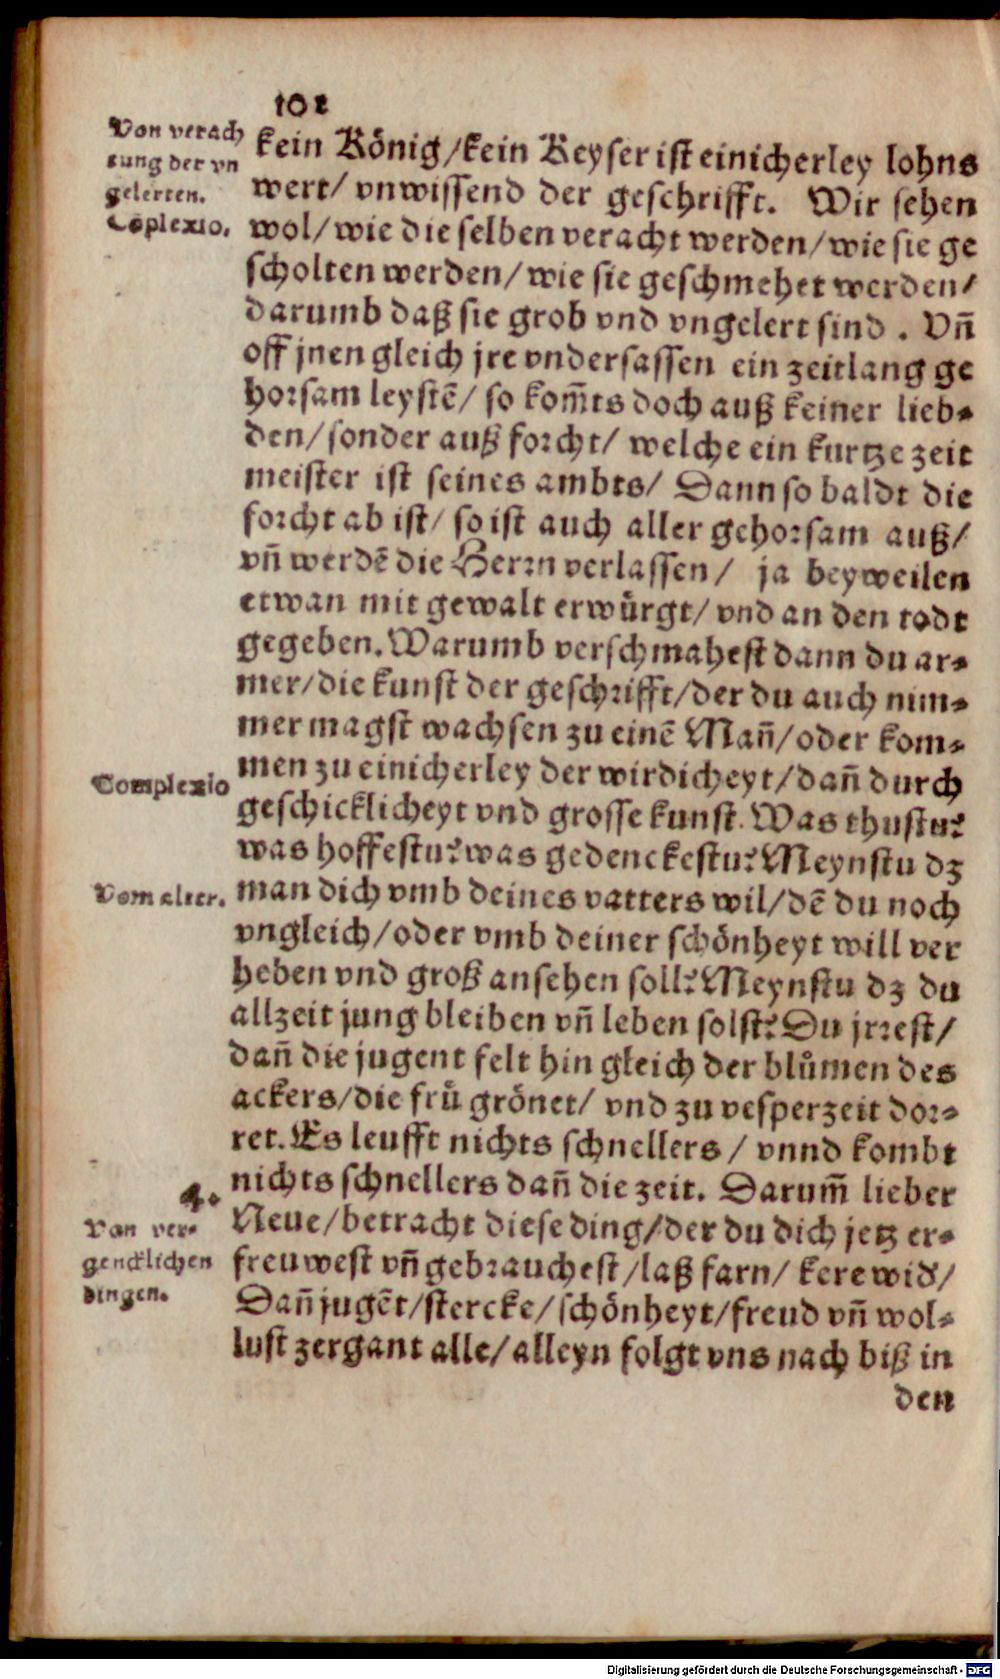 102
Von verach
tung der vn
gelerten.
Cōplexio.
kein König/kein Keyser ist einicherley lohns
wert/ vnwissend der geschrifft. Wir sehen
wol/wie die selben veracht werden/wie sie ge
scholten werden/wie sie geschmehet werden/
darumb daß sie grob vnd vngelert sind. Vñ
off jnen gleich jre vndersassen ein zeitlang ge
horsam leystē/ so kom̃ts doch auß keiner lieb-
den/sonder auß forcht/ welche ein kurtze zeit
meister ist seines ambts/ Dann so baldt die
forcht ab ist/ so ist auch aller gehorsam auß/
vñ werdē die Herrn verlassen/ ja beyweilen
etwan mit gewalt erwürgt/ vnd an den todt
gegeben. Warumb verschmahest dann du ar-
mer/die kunst der geschrifft/der du auch nim-
mer magst wachsen zu einē Mañ/oder kom-
men zu einicherley der wirdicheyt/dañ durch
Complexio
geschicklicheyt vnd grosse kunst. Was thustu?
was hoffestu? was gedenckestu? Meynstu dz
man dich vmb deines vatters wil/dē du noch
Vom alter.
vngleich/oder vmb deiner schönheyt will ver
heben vnd groß ansehen soll? Meynstu dz du
allzeit jung bleiben vñ leben solst? Du jrrest/
dañ die jugent felt hin gleich der blůmen des
ackers/die frů grönet/ vnd zu vesperzeit dor-
ret. Es leufft nichts schnellers/ vnnd kombt
nichts schnellers dañ die zeit. Darum̃ lieber
4.
Von ver-
gencklichen
dingen.
Neue/betracht diese ding/der du dich jetz er-
freuwest vñ gebrauchest/laß farn/ kere wid'/
Dañ jugēt/stercke/schönheyt/freud vñ wol-
lust zergant alle/alleyn folgt vns nach biß in
den
Digitalisierung gefördert durch die Deutsche Forschungsgemeinschaft - DFG